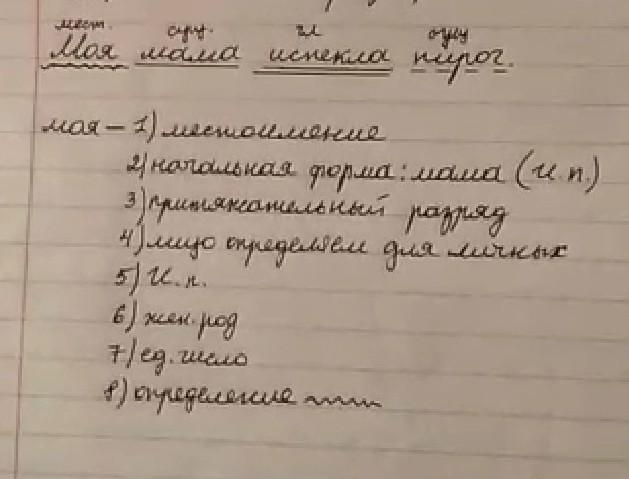 мест. сущ. гл сущ
Моя мама испекла пирог.
моя – 1) местоимение
2) начальная форма: мама (И.п.)
3) притяжательный разряд
4) лицо определяем для личных
5) И.п.
6) жен.род
7) ед.число
8) определение